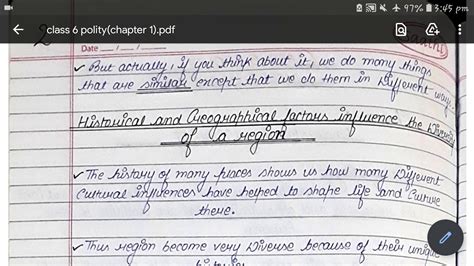 97% 3:45 pm
class 6 polity(chapter 1).pdf
2
Date
✓ But actually, if you think about it, we do many things
that are similar except that we do them in Different way
Historical and Geographical factors influence the Diversity
of a region
✓ The history of many places shows us how many Different
Cultural influences have helped to shape life and Culture
there.
✓ Thus region become very Diverse because of their unique